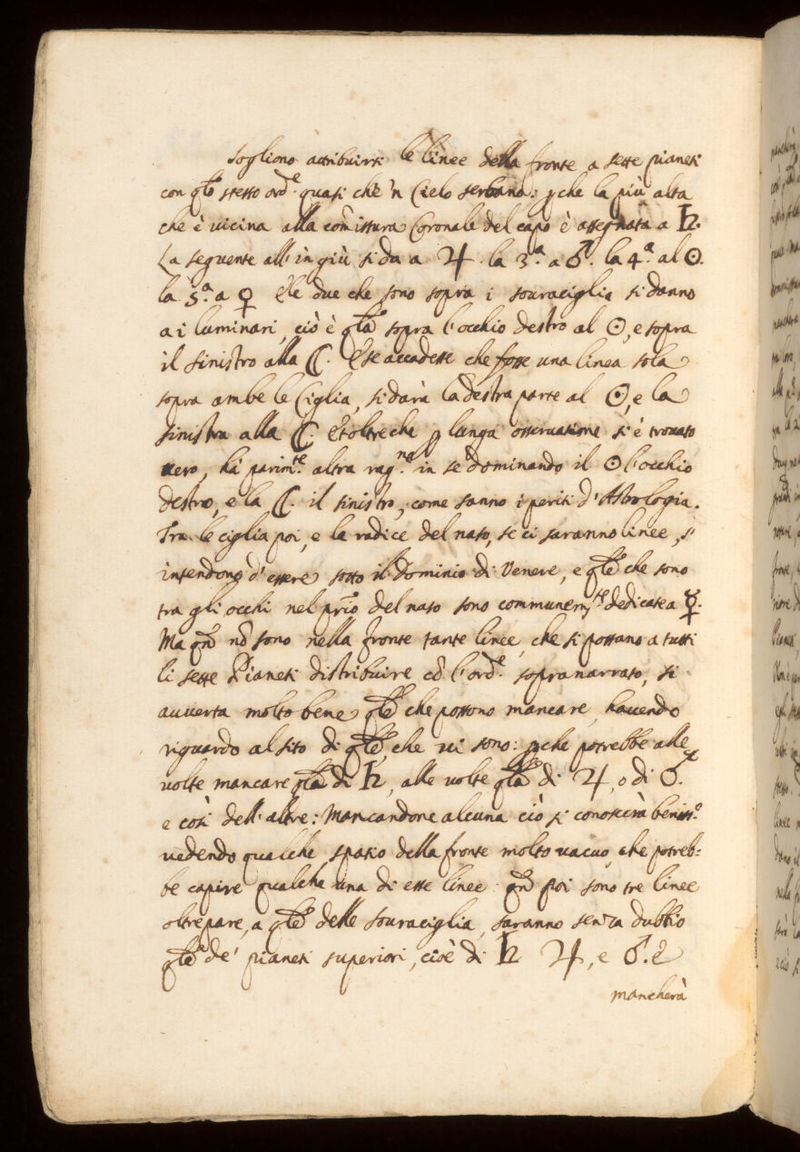 Sogliono attribuirsi le linee della fronte a sette pianeti
con qsto stesso ord.e quasi ch'è 'n Cielo serbano: pche la più alta
che è vicina alla com̃istura Coronale del capo è assegnata a ♄.
La seguente all' in giù si da a ♃. la 3.a a ♂. la 4.a al ☉.
la 5.a a ♀ E le due che sono sopra i souraciglia si danno
a i luminari, ciò è qlla sopra l'occhio destro al ☉, e sopra
il sinistro alla ☾. E se accadesse che fosse una linea sola
sopra ambe le Ciglia, si darà la destra parte al ☉, e la
sinistra alla ☾. Et oltre che p lunga osseruatione si è trouato
uero, hà parim.te altra rag.ne in se dominando il ☉ l'occhio
destro, e la ☾. il sinistro, come sanno i periti d'Astrologia.
Tra le ciglia poi, e la radice del naso, se ci saranno linee, s'
intendono d'essere sotto il Dominio di Venere, e qlle che sono
tra gli occhi nel prio del naso sono communem.te dedicate a ☿.
Ma qñ nõ sono nella fronte tante linee, che si possano a tutti
li sette Pianeti distribuire cõ l'ord.e sopranarrato, si
auuerta molto bene qlle che possono mancare, hauendo
riguardo al sito di qlle, che ui sono: pche potrebbe alle
uolte mancare qlla di ♄, alle uolte qlla di ♃, o di ♂.
e così dell'altre: Mancandone alcuna ciò si conoscerà beniss.o
uedendo qualche spatio della fronte molto uacuo, che potreb=
be capire qualche una di esse linee. qñ poi sono tre linee
oltre pare, a qlle delle souraciglia, saranno senza dubbio
qlle de' pianeti superiori, cioè di ♄ ♃, e ♂. E
mancherà